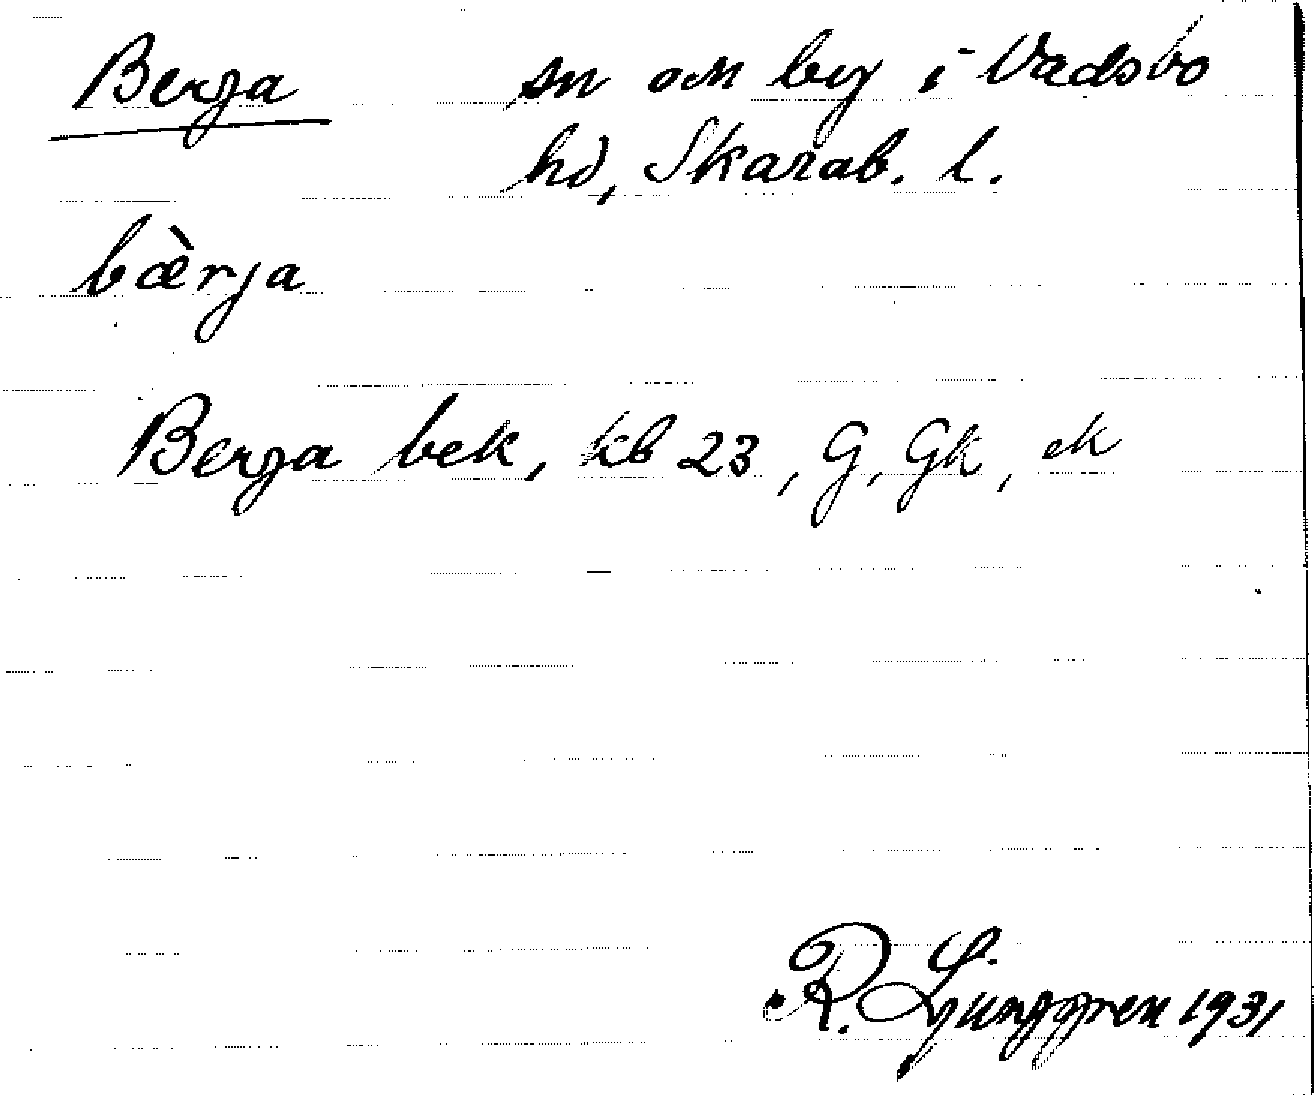 Berga sn om by i Vadsbo
hd, Skarab. l.
bærja
Berga bek, kb 23, G, Gk, ek
R. Ljunggren 1931